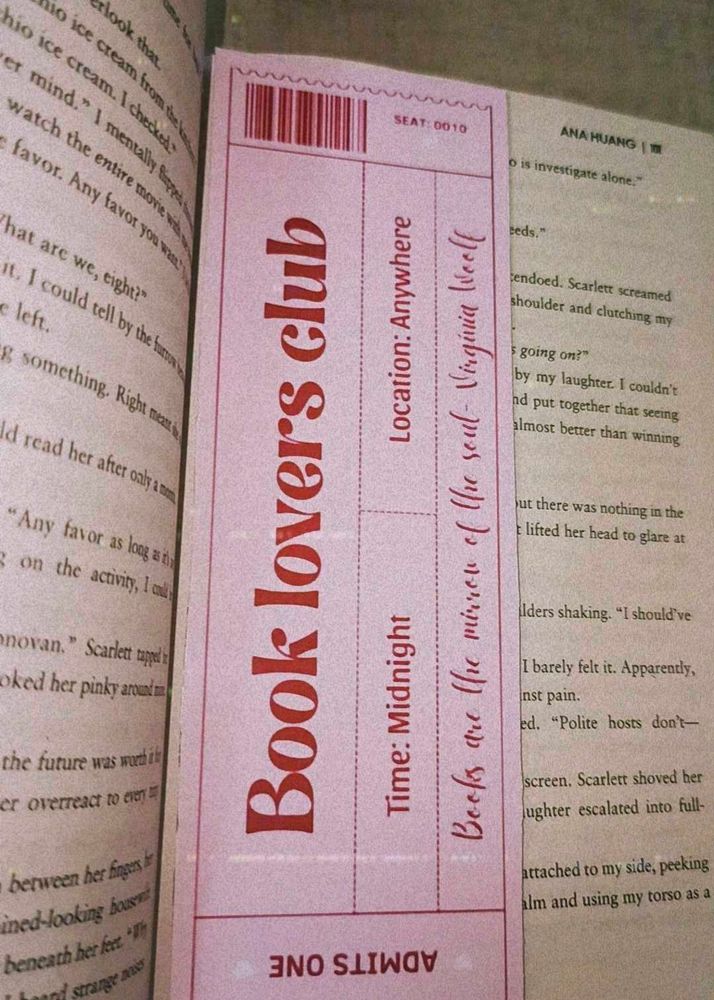 erlook that.
hio ice cream from the
hio ice cream. I checked."
er mind." I mentally flipped
watch the entire movie with
e favor. Any favor you want."
hat are we, eight?"
it. I could tell by the furrow
e left.
g something. Right meant
ld read her after only a
"Any favor as long as it's
g on the activity, I could
onovan." Scarlett tapped
oked her pinky around
the future was worth it
er overreact to every
between her fingers,
ined-looking
beneath her feet. "Why
heard strange noises
SEAT: 0010
Book lovers club
Time: Midnight
Location: Anywhere
Books are the mirror of the soul- Virginia Woolf
ADMITS ONE
ANA HUANG |
o is investigate alone."
eeds."
endoed. Scarlett screamed
shoulder and clutching my
s going on?"
by my laughter. I couldn't
nd put together that seeing
almost better than winning
out there was nothing in the
t lifted her head to glare at
lders shaking. "I should've
I barely felt it. Apparently,
nst pain.
ed. "Polite hosts don't—
screen. Scarlett shoved her
ughter escalated into full-
attached to my side, peeking
alm and using my torso as a